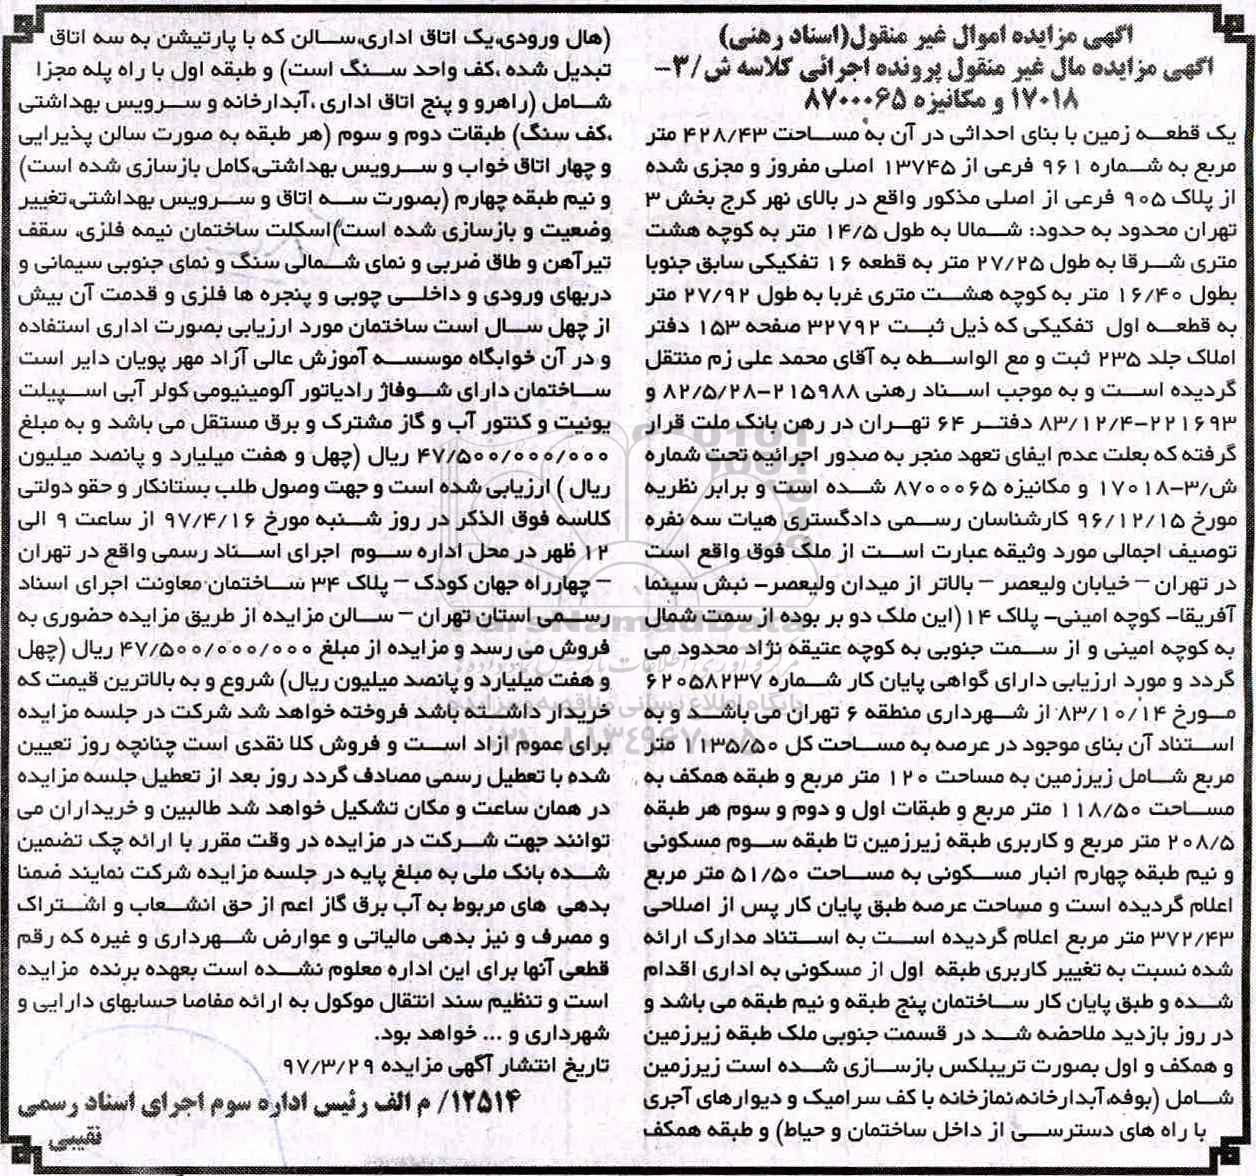 اگهی مزایده اموال غیر منقول(اسناد رهنی)
اگهی مزایده مال غیر منقول پرونده اجرائی کلاسه ش/۳-
۱۷۰۱۸ و مکانیزه ۸۷۰۰۰۶۵
یک قطعه زمین با بنای احداثی در آن به مساحت ۴۲۸/۴۳ متر
مربع به شماره ۹۶۱ فرعی از ۱۳۷۴۵ اصلی مفروز و مجزی شده
از پلاک ۹۰۵ فرعی از اصلی مذکور واقع در بالای نهر کرج بخش ۳
تهران محدود به حدود: شمالا به طول ۱۴/۵ متر به کوچه هشت
متری شرقا به طول ۲۷/۲۵ متر به قطعه ۱۶ تفکیکی سابق جنوبا
بطول ۱۶/۴۰ متر به کوچه هشت متری غربا به طول ۲۷/۹۲ متر
به قطعه اول تفکیکی که ذیل ثبت ۳۲۷۹۲ صفحه ۱۵۳ دفتر
املاک جلد ۲۳۵ ثبت و مع الواسطه به آقای محمد علی زم منتقل
گردیده است و به موجب اسناد رهنی ۲۱۵۹۸۸-۸۲/۵/۲۸ و
۲۲۱۶۹۳-۸۳/۱۲/۴ دفتر ۶۴ تهران در رهن بانک ملت قرار
گرفته که بعلت عدم ایفای تعهد منجر به صدور اجرائیه تحت شماره
ش/۳-۱۷۰۱۸ و مکانیزه ۸۷۰۰۰۶۵ شده است و برابر نظریه
مورخ ۹۶/۱۲/۱۵ کارشناسان رسمی دادگستری هیات سه نفره
توصیف اجمالی مورد وثیقه عبارت است از ملک فوق واقع است
در تهران – خیابان ولیعصر – بالاتر از میدان ولیعصر- نبش سینما
آفریقا- کوچه امینی- پلاک ۱۴(این ملک دو بر بوده از سمت شمال
به کوچه امینی و از سمت جنوبی به کوچه عتیقه نژاد محدود می
گردد و مورد ارزیابی دارای گواهی پایان کار شماره ۶۲۰۵۸۲۳۷
مورخ ۸۳/۱۰/۱۴ از شهرداری منطقه ۶ تهران می باشد و به
استناد آن بنای موجود در عرصه به مساحت کل ۱۱۳۵/۵۰ متر
مربع شامل زیرزمین به مساحت ۱۲۰ متر مربع و طبقه همکف به
مساحت ۱۱۸/۵۰ متر مربع و طبقات اول و دوم و سوم هر طبقه
۲۰۸/۵ متر مربع و کاربری طبقه زیرزمین تا طبقه سوم مسکونی
و نیم طبقه چهارم انبار مسکونی به مساحت ۵۱/۵۰ متر مربع
اعلام گردیده است و مساحت عرصه طبق پایان کار پس از اصلاحی
۳۷۲/۴۳ متر مربع اعلام گردیده است به استناد مدارک ارائه
شده نسبت به تغییر کاربری طبقه اول از مسکونی به اداری اقدام
شده و طبق پایان کار ساختمان پنج طبقه و نیم طبقه می باشد و
در روز بازدید ملاحضه شد در قسمت جنوبی ملک طبقه زیرزمین
و همکف و اول بصورت تریبلکس بازسازی شده است زیرزمین
شامل (بوفه،آبدارخانه،نمازخانه با کف سرامیک و دیوارهای آجری
با راه های دسترسی از داخل ساختمان و حیاط) و طبقه همکف
(هال ورودی،یک اتاق اداری،سالن که با پارتیشن به سه اتاق
تبدیل شده ،کف واحد سنگ است) و طبقه اول با راه پله مجزا
شامل (راهرو و پنج اتاق اداری ،آبدارخانه و سرویس بهداشتی
،کف سنگ) طبقات دوم و سوم (هر طبقه به صورت سالن پذیرایی
و چهار اتاق خواب و سرویس بهداشتی،کامل بازسازی شده است)
و نیم طبقه چهارم (بصورت سه اتاق و سرویس بهداشتی،تغییر
وضعیت و بازسازی شده است)اسکلت ساختمان نیمه فلزی، سقف
تیرآهن و طاق ضربی و نمای شمالی سنگ و نمای جنوبی سیمانی و
دربهای ورودی و داخلی چوبی و پنجره ها فلزی و قدمت آن بیش
از چهل سال است ساختمان مورد ارزیابی بصورت اداری استفاده
و در آن خوابگاه موسسه آموزش عالی آزاد مهر پویان دایر است
ساختمان دارای شوفاژ رادیاتور آلومینیومی کولر آبی اسپیلت
یونیت و کنتور آب و گاز مشترک و برق مستقل می باشد و به مبلغ
۴۷/۵۰۰/۰۰۰/۰۰۰ ریال (چهل و هفت میلیارد و پانصد میلیون
ریال ) ارزیابی شده است و جهت وصول طلب بستانکار و حقو دولتی
کلاسه فوق الذکر در روز شنبه مورخ ۹۷/۴/۱۶ از ساعت ۹ الی
۱۲ ظهر در محل اداره سوم اجرای اسناد رسمی واقع در تهران
– چهارراه جهان کودک – پلاک ۳۴ ساختمان معاونت اجرای اسناد
رسمی استان تهران – سالن مزایده از طریق مزایده حضوری به
فروش می رسد و مزایده از مبلغ ۴۷/۵۰۰/۰۰۰/۰۰۰ ریال (چهل
و هفت میلیارد و پانصد میلیون ریال) شروع و به بالاترین قیمت که
خریدار داشته باشد فروخته خواهد شد شرکت در جلسه مزایده
برای عموم ازاد است و فروش کلا نقدی است چنانچه روز تعیین
شده با تعطیل رسمی مصادف گردد روز بعد از تعطیل جلسه مزایده
در همان ساعت و مکان تشکیل خواهد شد طالبین و خریداران می
توانند جهت شرکت در مزایده در وقت مقرر با ارائه چک تضمین
شده بانک ملی به مبلغ پایه در جلسه مزایده شرکت نمایند ضمنا
بدهی های مربوط به آب برق گاز اعم از حق انشعاب و اشتراک
و مصرف و نیز بدهی مالیاتی و عوارض شهرداری و غیره که رقم
قطعی آنها برای این اداره معلوم نشده است بعهده برنده مزایده
است و تنظیم سند انتقال موکول به ارائه مفاصا حسابهای دارایی و
شهرداری و ... خواهد بود.
تاریخ انتشار آگهی مزایده ۹۷/۳/۲۹
۱۲۵۱۴/ م الف رئیس اداره سوم اجرای اسناد رسمی
نقیبی
ParsNamadData
پایگاه اطلاع رسانی مناقصه و مزایده